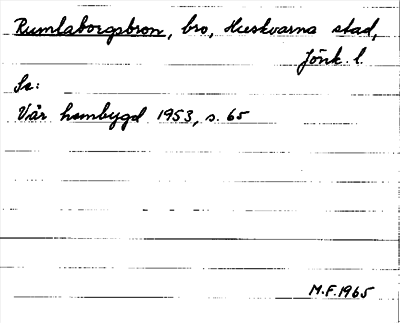 Rumlaborgsbron, bro, Huskvarna stad,
Jönk. l.
Se:
Vår hembygd 1953, s. 65
M.F. 1965